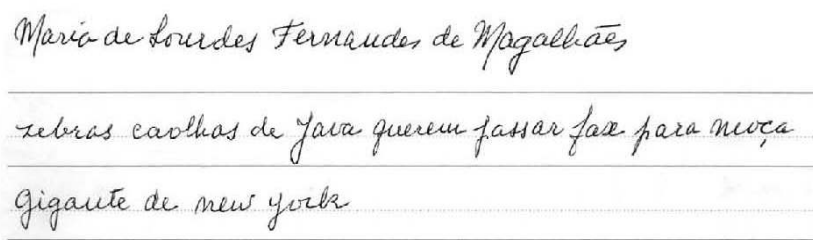 Maria de Lourdes Fernandes de Magalhães
zebras caolhas de Java querem passar fax para moça
gigante de new york